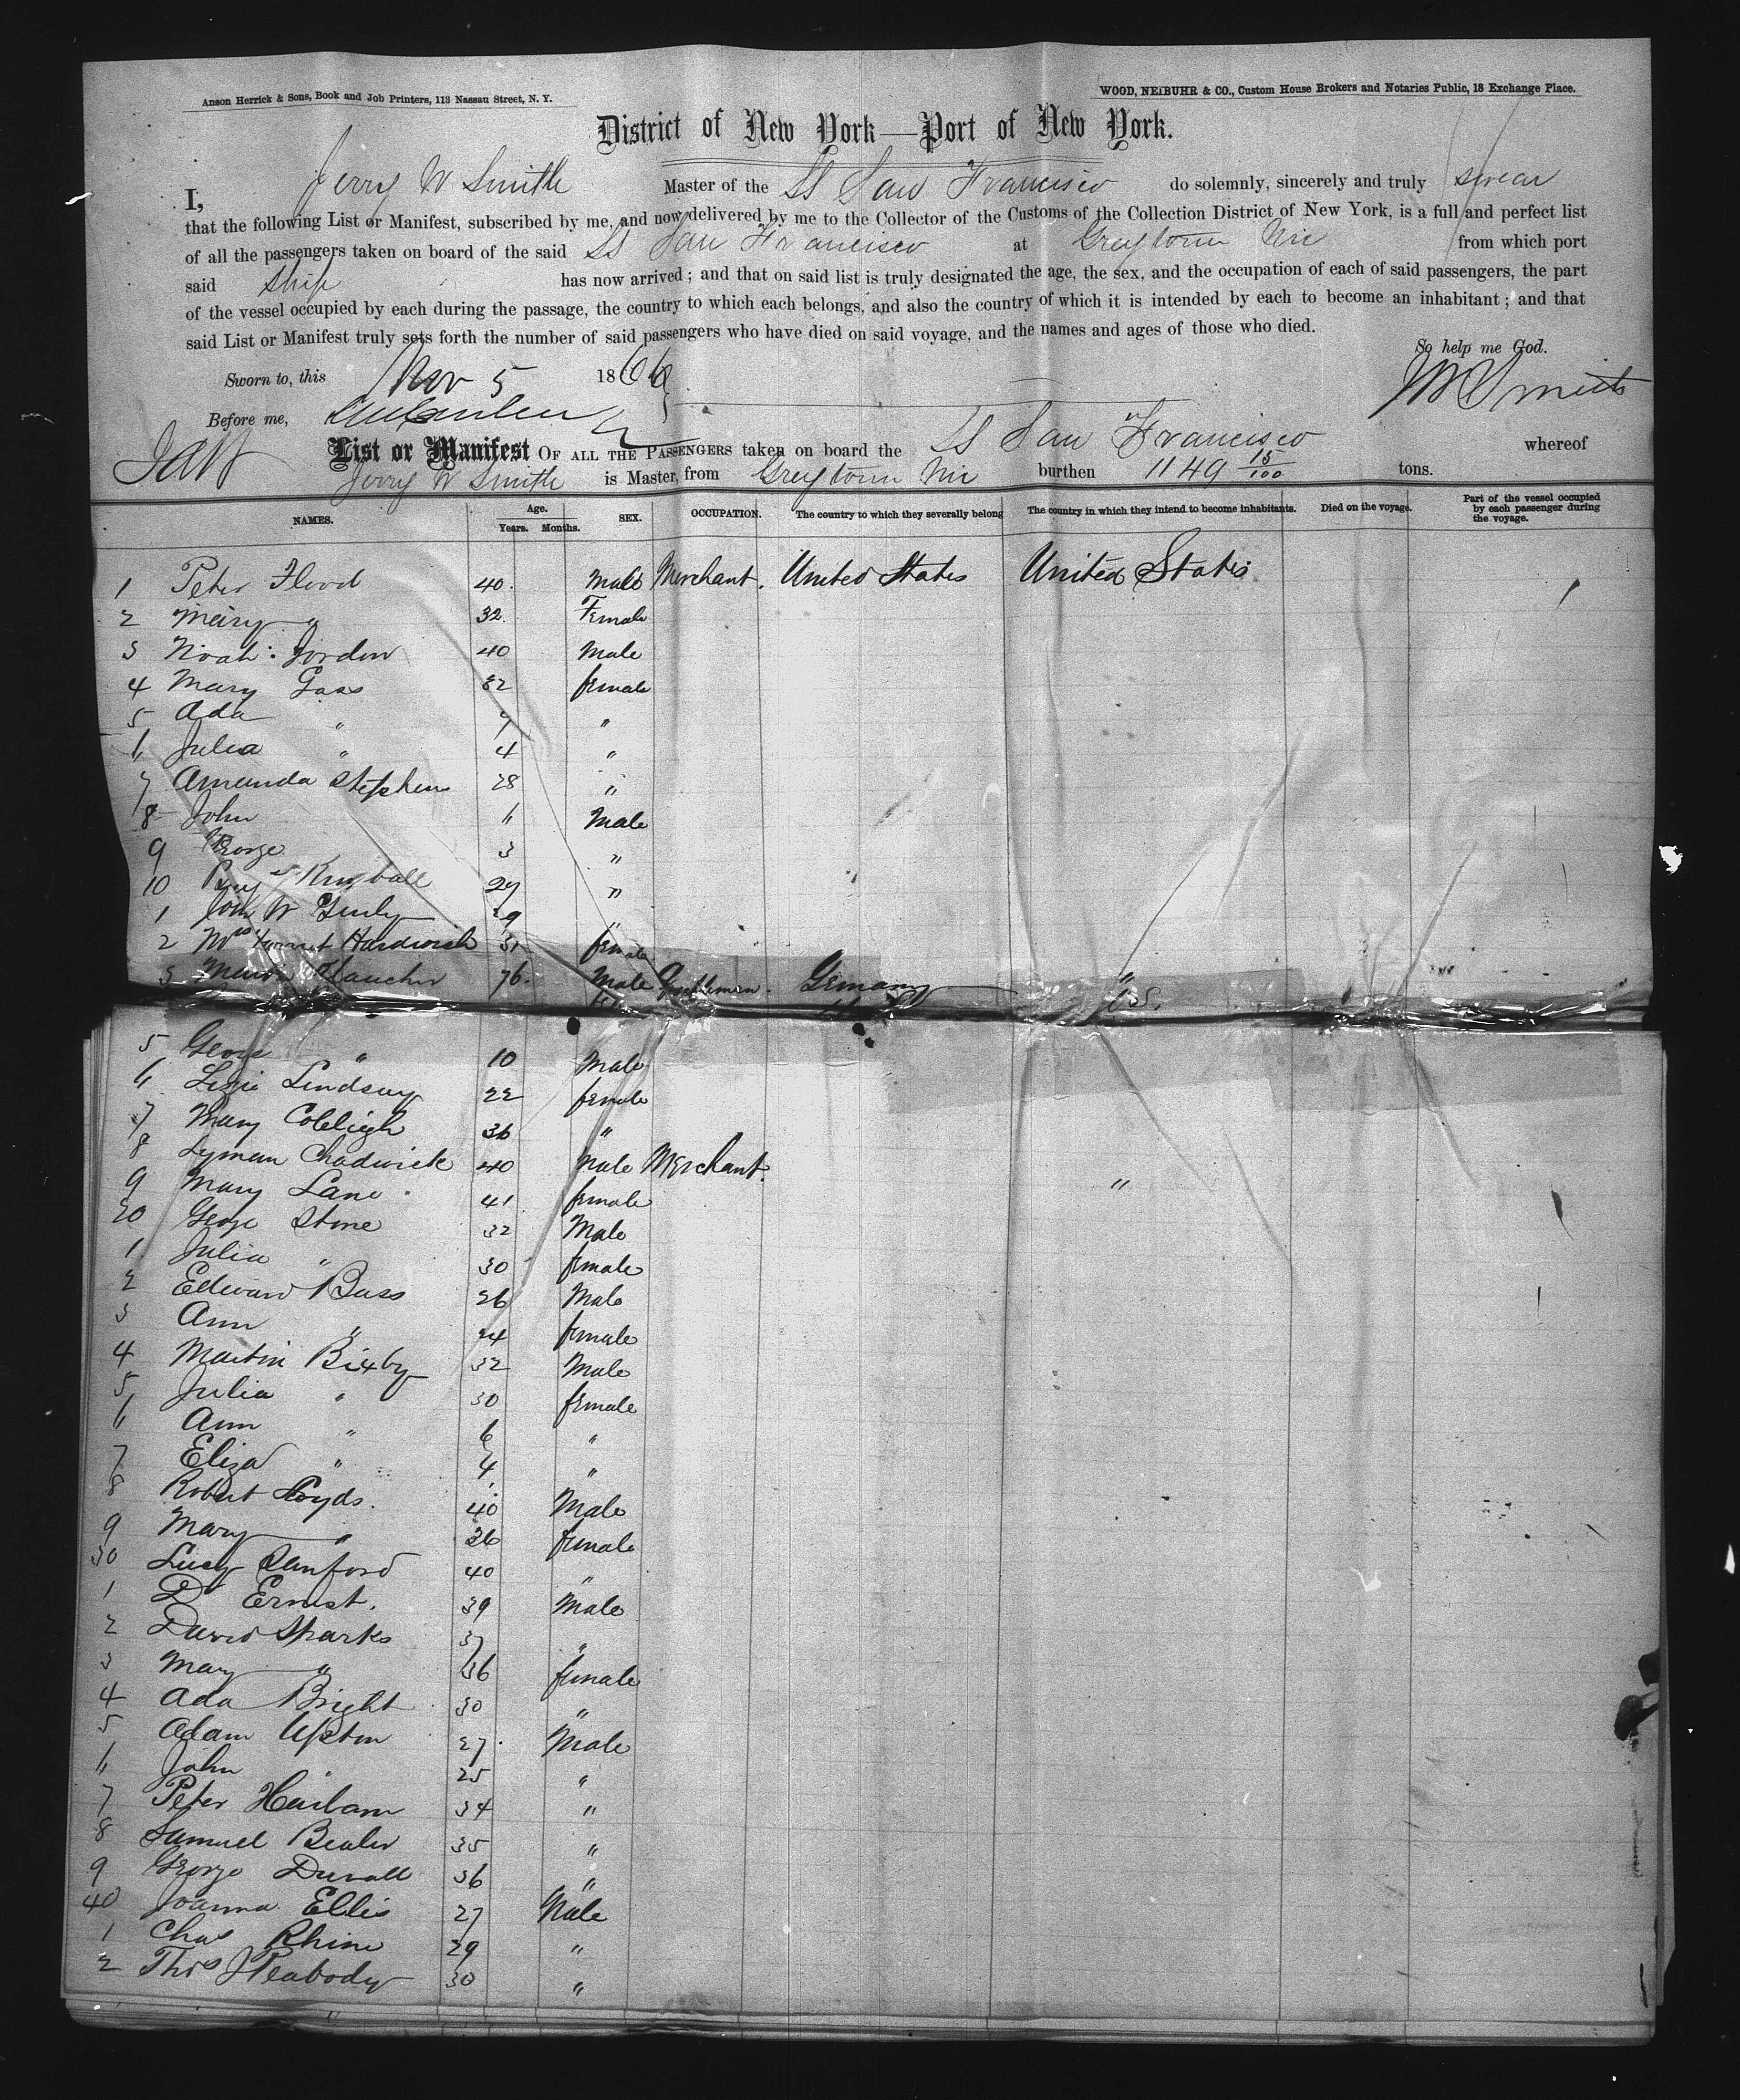 Anson Herrick & Sons, Book and Job Printers, 113 Nassau Street, N. Y.
WOOD, NEIBUHR & CO., Custom House Brokers and Notaries Public, 18 Exchange Place.
District of New York—Port of New York.
I, Jerry W Smith Master of the SS San Francisco do solemnly, sincerely and truly swear
that the following List or Manifest, subscribed by me, and now delivered by me to the Collector of the Customs of the Collection District of New York, is a full and perfect list
of all the passengers taken on board of the said SS San Francisco at Greytown Nic from which port
said ship has now arrived; and that on said list is truly designated the age, the sex, and the occupation of each of said passengers, the part
of the vessel occupied by each during the passage, the country to which each belongs, and also the country of which it is intended by each to become an inhabitant; and that
said List or Manifest truly sets forth the number of said passengers who have died on said voyage, and the names and ages of those who died.
So help me God.
Sworn to, this Nov 5 1866
JW Smith
Before me,
List or Manifest OF ALL THE PASSENGERS taken on board the SS San Francisco whereof
Jerry W Smith is Master, from Greytown Nic burthen 1149 15/100 tons.
NAMES. Age. Years. Months. SEX. OCCUPATION. The country to which they severally belong The country in which they intend to become inhabitants. Died on the voyage. Part of the vessel occupied by each passenger during the voyage.
1 Peter Flood 40 Male Merchant. United States United States
2 Mary " 32 Female
3 Noah Jordon 40 Male
4 Mary Gass 32 female
5 Ada 9 "
6 Julia " 4 "
7 Amanda Stephens 28 "
8 John 6 Male
9 George 3 "
10 Kimball 27 "
1 John W 29 "
2 Mrs Harriet Hardwick 31 female
3 76. Male Gentleman. Germany "
5 George " 10 Male
6 Lizie Lindsay 22 female
7 Mary Cobleigh 36 "
8 Lyman Chadwick 40 Male Merchant. "
9 Mary Lane 41 female
20 George Stone 32 Male
1 Julia " 30 female
2 Edward Bass 26 Male
3 Ann " 24 female
4 Martin Bixby 32 Male
5 Julia " 30 female
6 Ann " 6 "
7 Eliza " 4 "
8 Robert Loyds. 40 Male
9 Mary " 26 female
30 Lucy Sanford 40 "
1 Dr Ernst. 39 Male
2 David Sparks 37 "
3 Mary " 36 female
4 Ada Bright 30 "
5 Adam Upton 27 Male
6 John 25 "
7 Peter 34 "
8 Samuel Bealer 35 "
9 George Duvall 36 "
40 Joanna Ellis 27 Male
1 Chas Rhine 29 "
2 Thos J Peabody 30 "